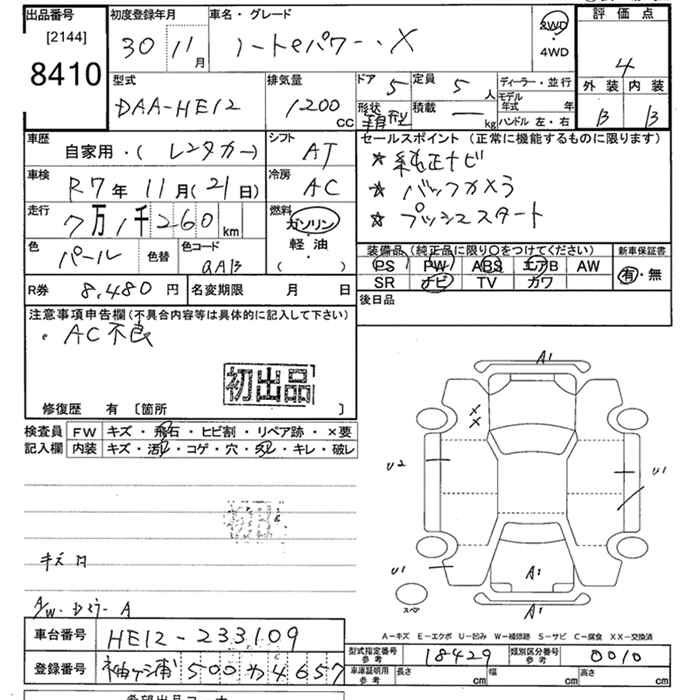 出品番号
[2144]
8410
初度登録年月
30 11月
車名・グレード
ノートeパワー・X
2WD・4WD
評価点
4
外装 内装
B B
型式
DAA-HE12
排気量
1200 CC
ドア 5
定員 5人
形状 箱型
積載 ー kg
ディーラー・並行
モデル年式 年
ハンドル 左・右
車歴
自家用・(レンタカー)
シフト AT
車検 R7年11月(21日)
冷房 AC
走行 7万1千260km
燃料 ガソリン・軽油・( )
色 パール 色替
色コード QAB
セールスポイント (正常に機能するものに限ります)
☆純正ナビ
☆バックカメラ
☆プッシュスタート
装備品(純正品に限り○をつけてください)
PS PW ABS エアB AW
SR ナビ TV カワ
新車保証書
有・無
R券 8,480円
名変期限 月 日
後日品
注意事項申告欄(不具合内容等は具体的に記入して下さい)
・AC不良
初出品
修復歴 有〔箇所 〕
検査員記入欄
FW キズ・飛石・ヒビ割・リペア跡・×要
内装 キズ・汚レ・コゲ・穴・スレ・キレ・破レ
A1
XX
U2
U1
U1
A1
A1
スペア
キズ
A/W
A
A-キズ E-エクボ U-凹み W-補修跡 S-サビ C-腐食 XX-交換済
車台番号 HE12-233109
登録番号 袖ヶ浦500か4657
型式指定番号 参考 18429
類別区分番号 参考 0010
車庫証明用 参考 長さ cm 幅 cm 高さ cm